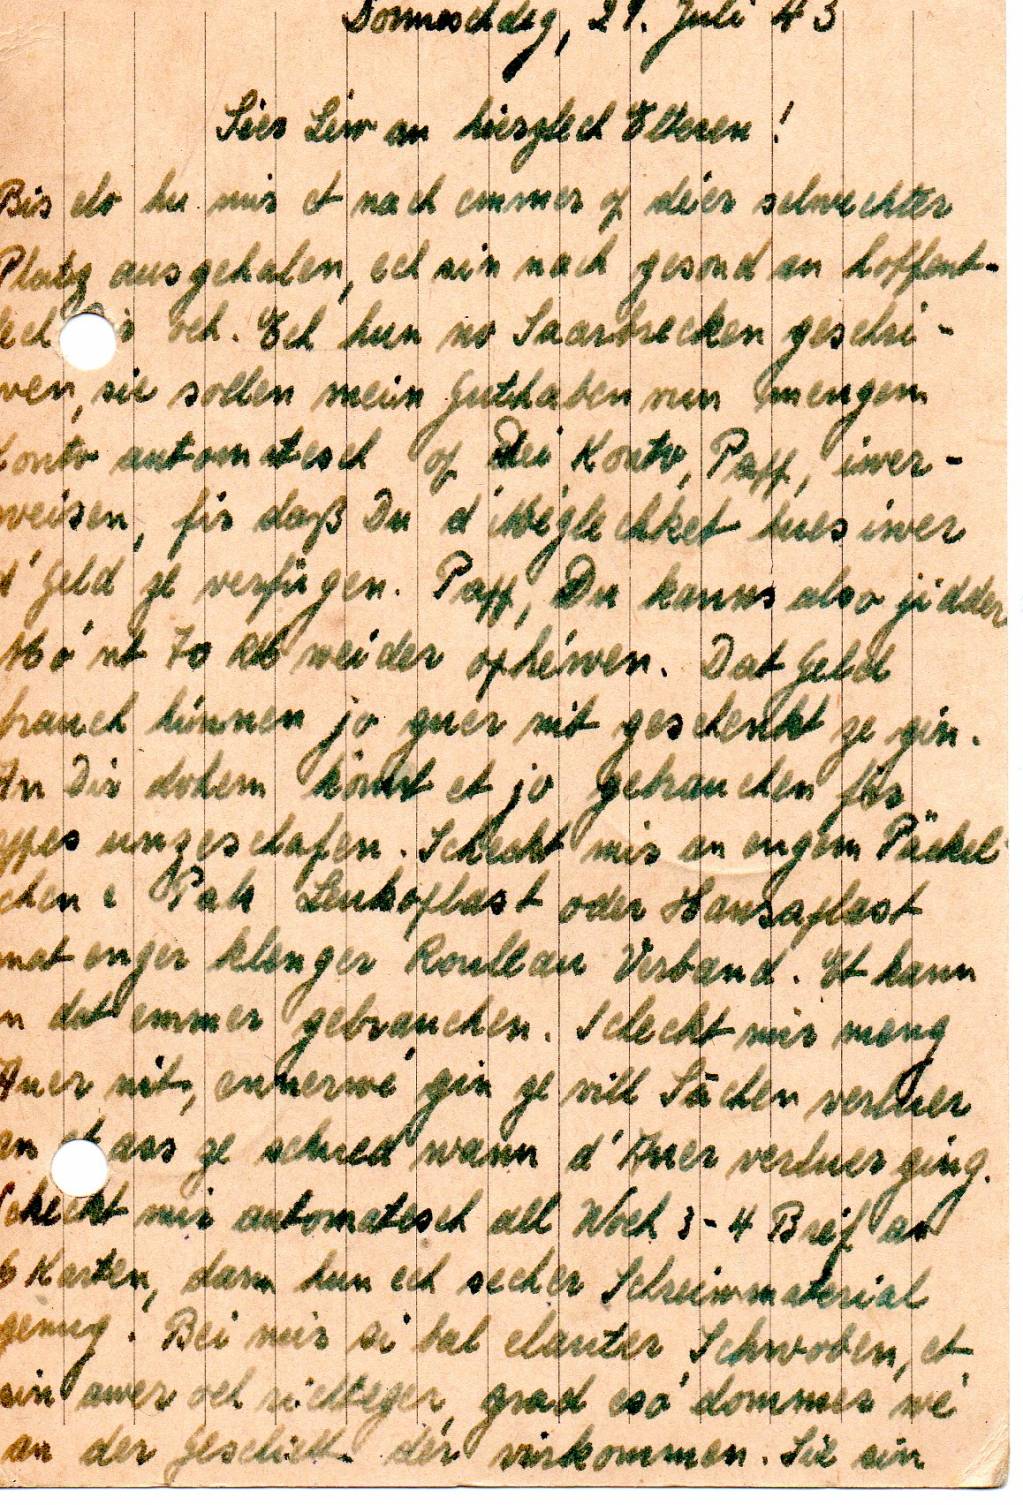 Donneschdeg, 29. Juli 43
Léif Léiw an hierzlech Elteren!
Bis elo hu mir et nach emmer op déier schlechter
Platz ausgehalen, ech sin nach gesond an hoffent-
lech och. Ech hun no Saarbrecken geschri-
wen, sie sollen mein Guthaben vun mengem
Konto automatesch op dei Konto, Papp, iwer-
weisen, fir daß Du d'Méglechket hues iwer
d'Geld ze verfügen. Papp, Du kanns also jidder
Mó'nt 70 RM weider ophéwen. Dat Geld
brauch hinnen jo guer nit geschenkt ze gin.
An Dir dohem könnt et jo gebrauchen fir
eppes unzeschafen. Scheckt mir an engem Päckel-
chen e Pak Leukoplast oder Hansaplast
mat enger klenger Roullau Verband. Et kann
en dat emmer gebrauchen. Scheckt mir meng
Auer nit, ennerwé gin ze vill Sachen verluer
an et ass ze schued wann d'Auer verluer ging.
Scheckt mir automatesch all Woch 3-4 Bréif an
6 Karten, dann hun ech secher Schreiwmaterial
genug. Bei mir si bal elauter Schwoben, et
sin awer och richteger, grad esó dommer wé
an der Geschicht dér virkommen. Sie sin